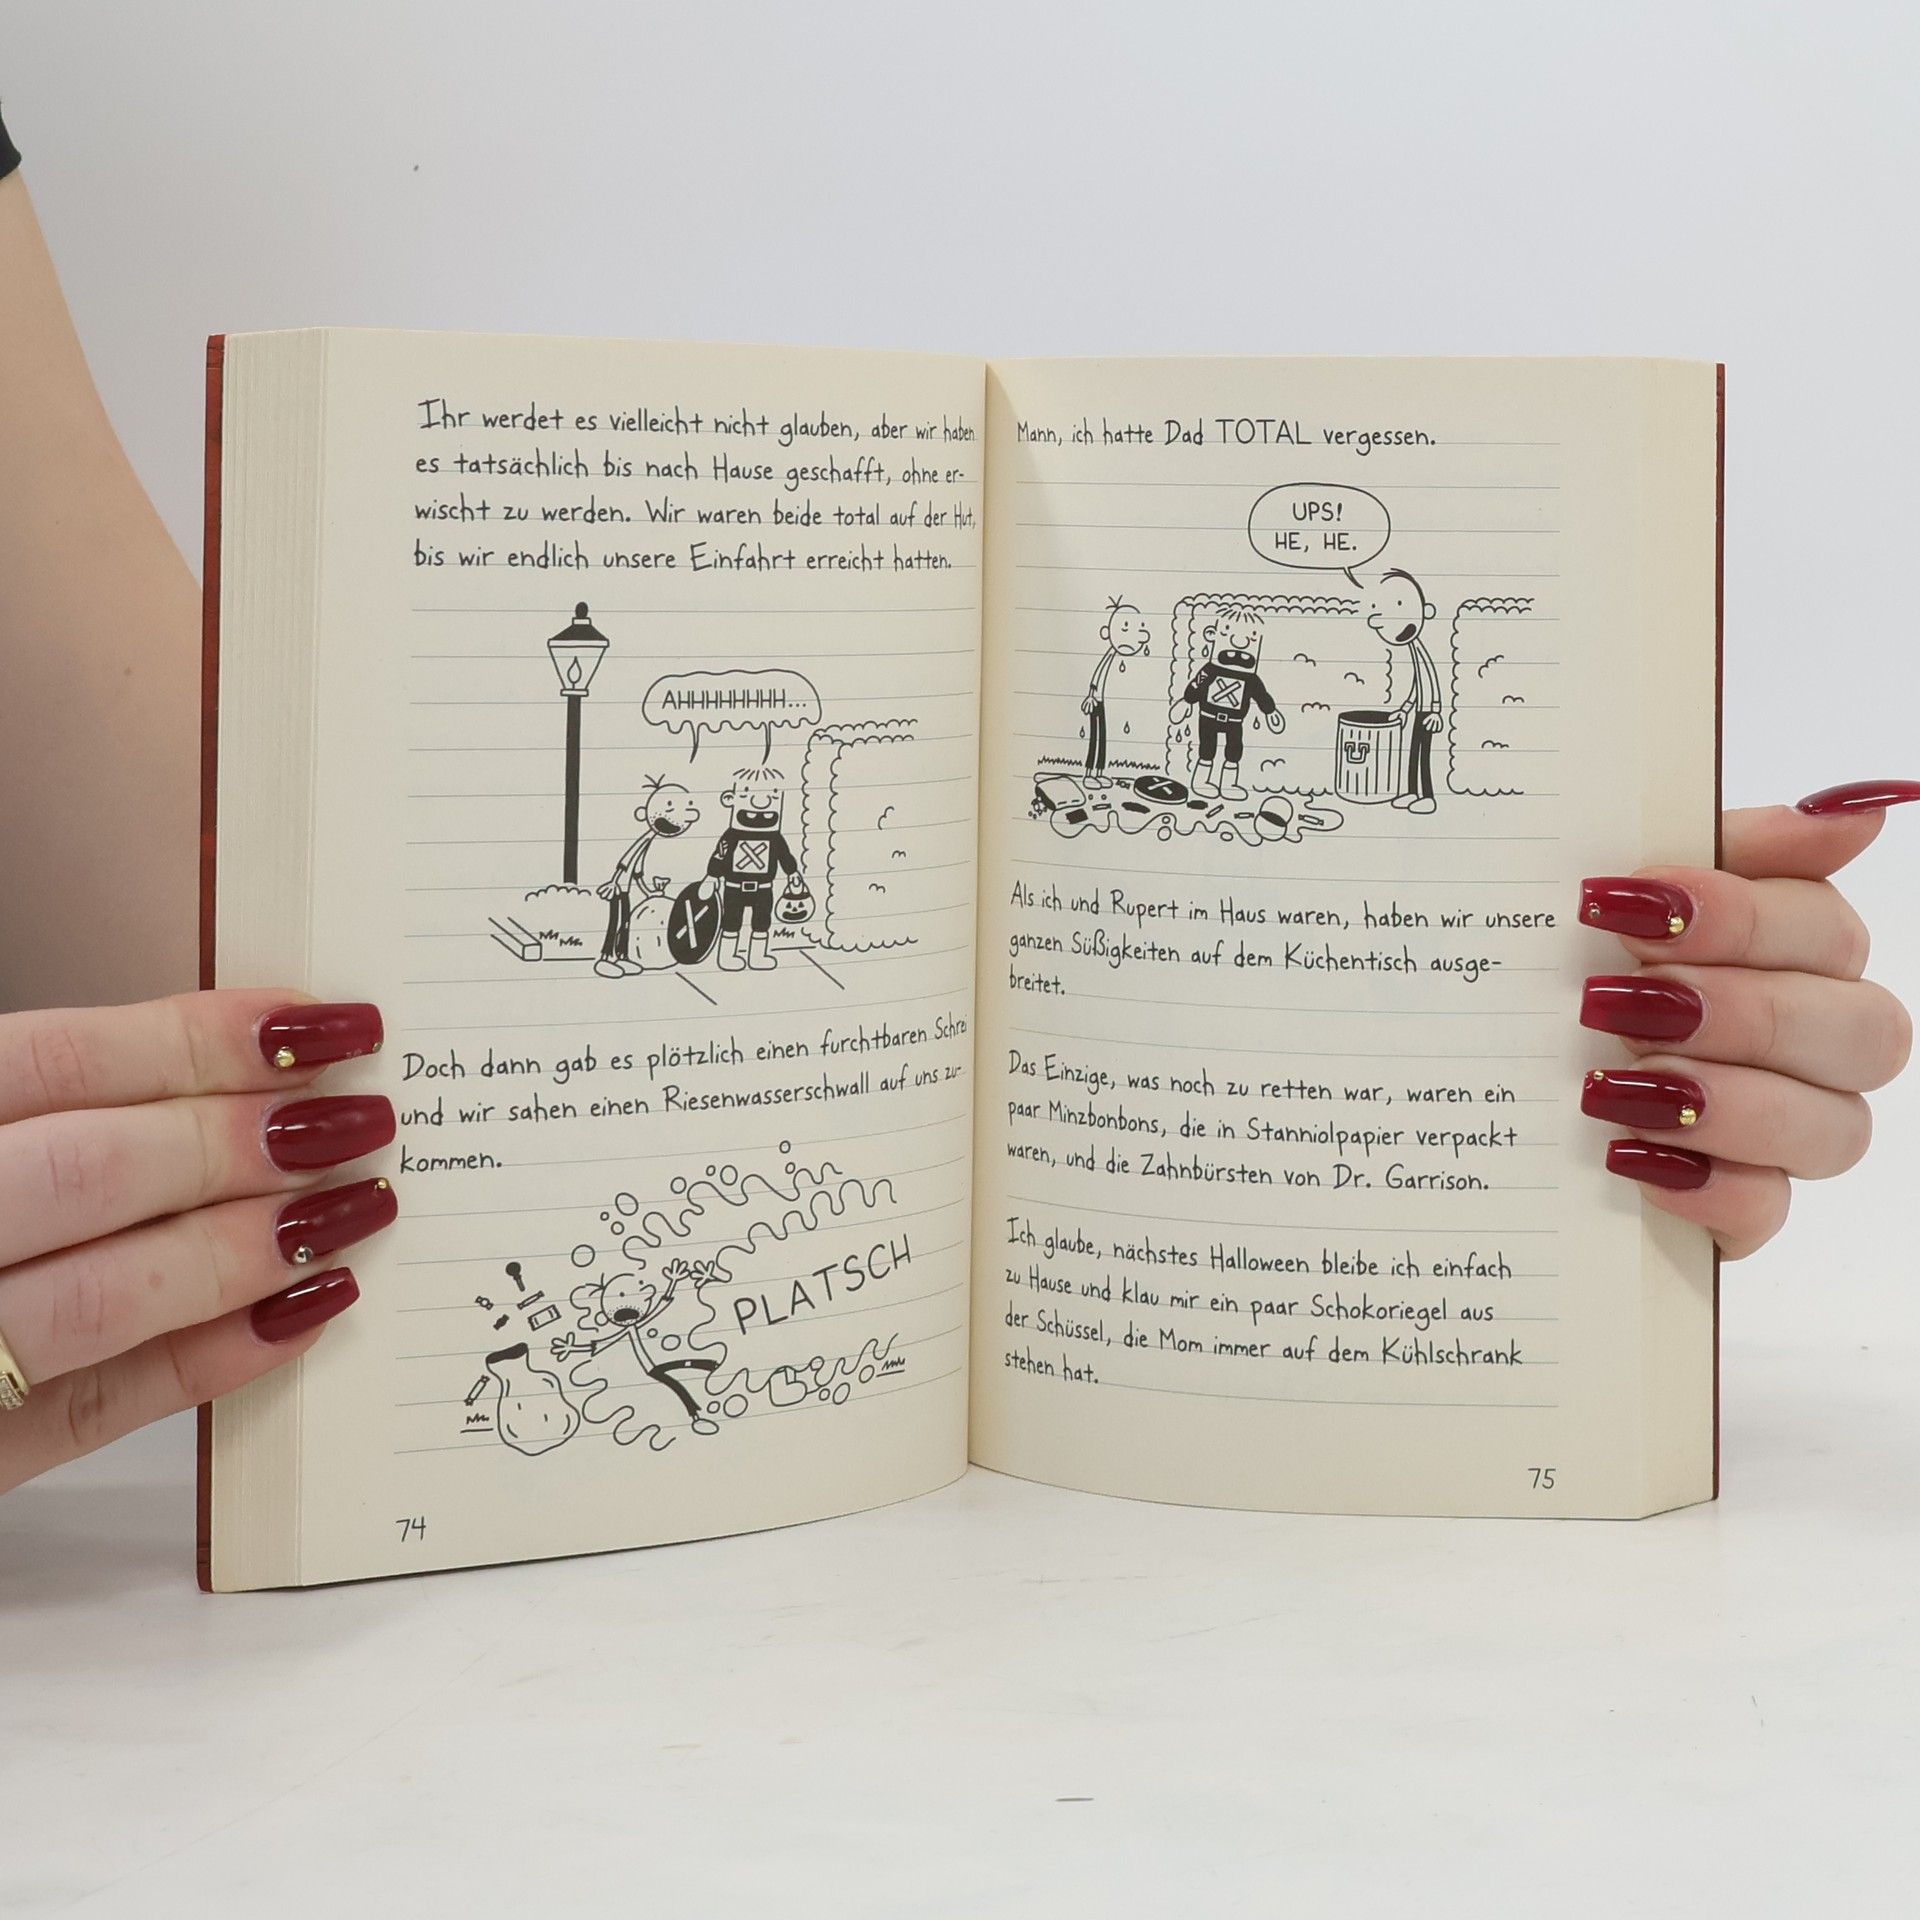 Ihr werdet es vielleicht nicht glauben, aber wir haben
es tatsächlich bis nach Hause geschafft, ohne er-
wischt zu werden. Wir waren beide total auf der Hut,
bis wir endlich unsere Einfahrt erreicht hatten.
AHHHHHHHH...
Doch dann gab es plötzlich einen furchtbaren Schrei
und wir sahen einen Riesenwasserschwall auf uns zu-
kommen.
PLATSCH
74
Mann, ich hatte Dad TOTAL vergessen.
UPS!
HE, HE.
Als ich und Rupert im Haus waren, haben wir unsere
ganzen Süßigkeiten auf dem Küchentisch ausge-
breitet.
Das Einzige, was noch zu retten war, waren ein
paar Minzbonbons, die in Stanniolpapier verpackt
waren, und die Zahnbürsten von Dr. Garrison.
Ich glaube, nächstes Halloween bleibe ich einfach
zu Hause und klau mir ein paar Schokoriegel aus
der Schüssel, die Mom immer auf dem Kühlschrank
stehen hat.
75